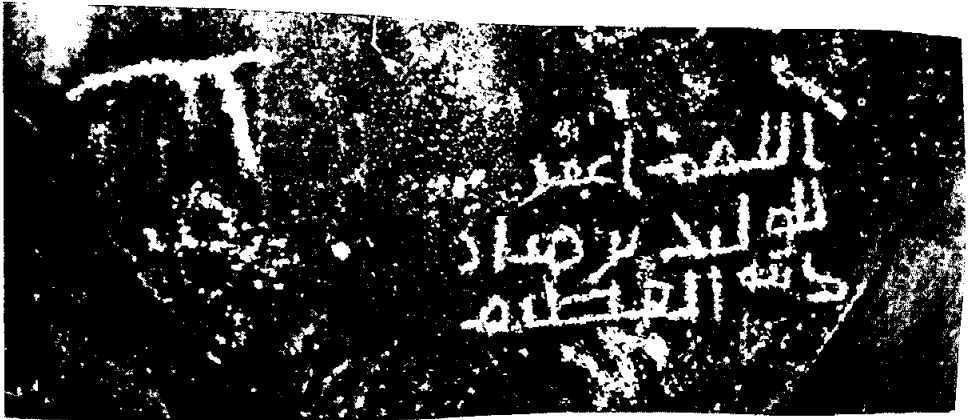 اللهم اغفر
للوليد بن
ذنبه العظيم